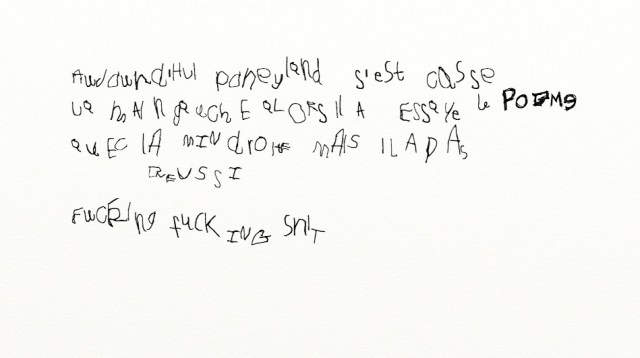 AuJOURD'HUI poneyland s'est casse
la mAIN gauchE ALORS Il A ESSAYe le POEME
avEC lA mAIN droite mAIS IL A PAs
REUSSI
FUCKINg fuCKING ShIT